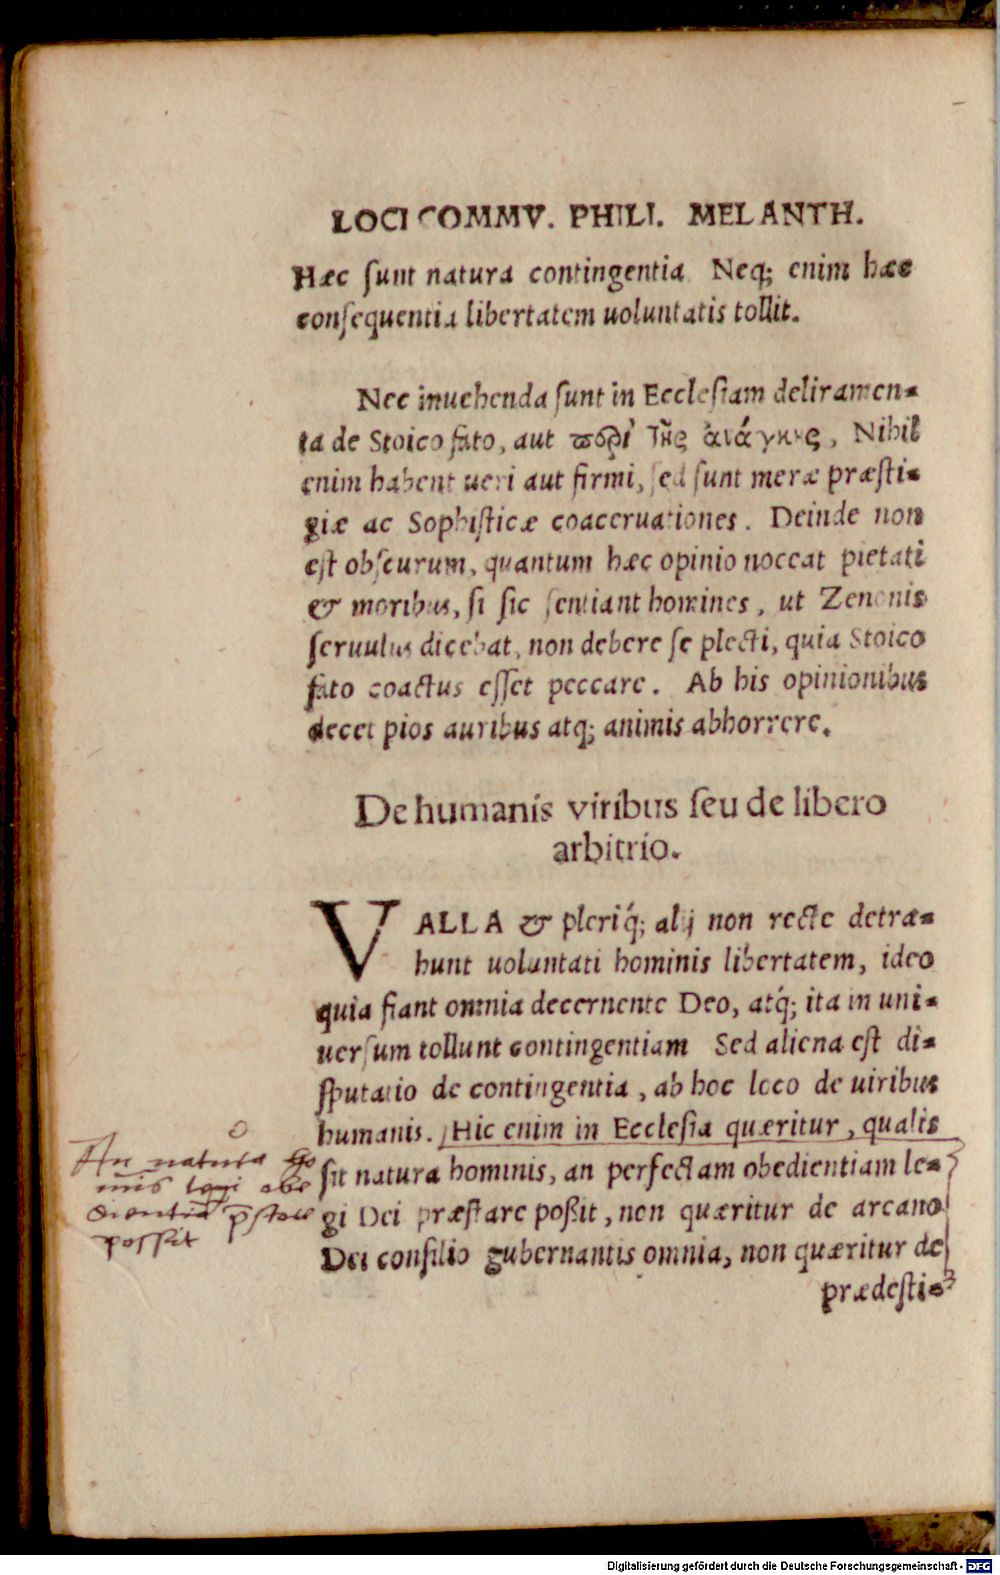 LOCI COMMV. PHILI. MELANTH.
Hæc sunt natura contingentia. Neq; enim hæc
consequentia libertatem uoluntatis tollit.
Nec inuehenda sunt in Ecclesiam deliramen=
ta de Stoico fato, aut περὶ τῆς ἀνάγκης, Nihil
enim habent ueri aut firmi, sed sunt meræ præsti=
giæ ac Sophisticæ coaceruationes. Deinde non
est obscurum, quantum hæc opinio noceat pietati
& moribus, si sic sentiant homines, ut Zenonis
seruulus dicebat, non debere se plecti, quia Stoico
fato coactus esset peccare. Ab his opinionibus
decet pios auribus atq; animis abhorrere.
De humanis viribus seu de libero
arbitrio.
VALLA & pleriq́; alij non recte detræ=
hunt uoluntati hominis libertatem, ideo
quia fiant omnia decernente Deo, atq́; ita in uni=
uersum tollunt contingentiam Sed aliena est di=
sputatio de contingentia, ab hoc loco de uiribus
humanis. Hic enim in Ecclesia quæritur, qualis
sit natura hominis, an perfectam obedientiam le=
gi Dei præstare poßit, non quæritur de arcano
Dei consilio gubernantis omnia, non quæritur de
prædesti=
An natura ho
minis legi obe
dientiā p̄stare
possit
Digitalisierung gefördert durch die Deutsche Forschungsgemeinschaft - DFG